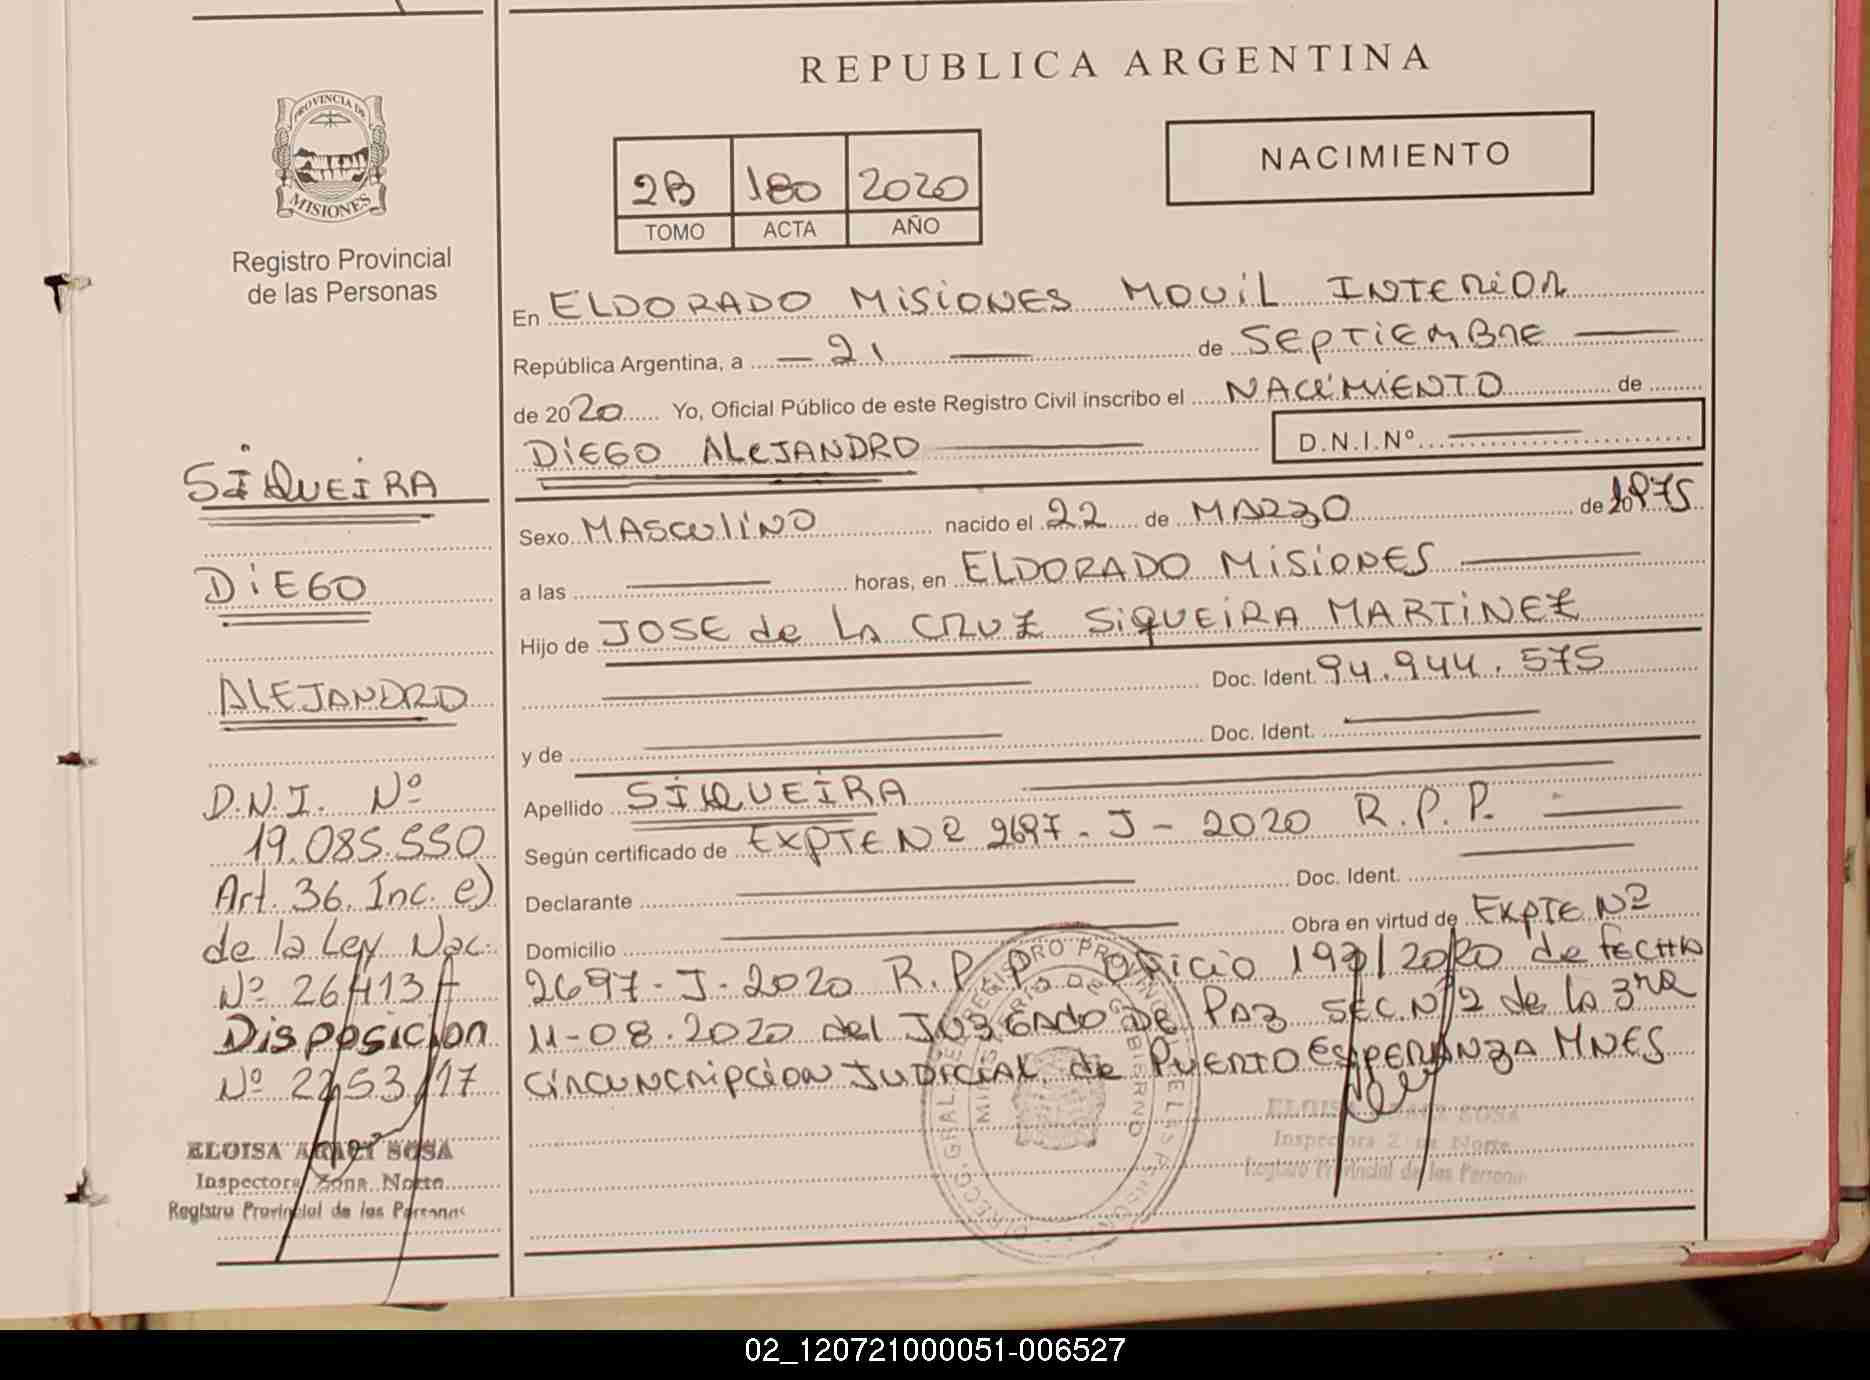 REPUBLICA ARGENTINA
PROVINCIA DE
MISIONES
Registro Provincial
de las Personas
NACIMIENTO
2B 180 2020
TOMO ACTA AÑO
En ELDORADO MISIONES MOVIL INTERIOR
República Argentina, a — 21 — de SEPTIEMBRE —
de 2020 Yo, Oficial Público de este Registro Civil inscribo el NACIMIENTO de
DIEGO ALEJANDRO — D.N.I.Nº —
Sexo MASCULINO nacido el 22 de MARZO de 1975
a las — horas, en ELDORADO MISIONES —
Hijo de JOSE de LA CRUZ SIQUEIRA MARTINEZ
— Doc. Ident. 94.944.575
y de — Doc. Ident. —
Apellido SIQUEIRA —
Según certificado de EXPTE Nº 2697-J-2020 R.P.P. —
Declarante — Doc. Ident. —
Domicilio — Obra en virtud de EXPTE Nº
2697-J-2020 R.P.P. OFICIO /2020 de FECHA
11-08.2020 del JUZGADO DE PAZ SEC.Nº2 de la 3ra
CIRCUNCRIPCION JUDICIAL de PUERTO ESPERANZA MNES
SIQUEIRA
DIEGO
ALEJANDRO
D.N.I. Nº
19.085.550
Art. 36. Inc. e)
de la Ley Nac.
Nº 26413
Disposicion
Nº 2253/17
ELOISA ARACI SOSA
Inspectora Zona Norte
Registro Provincial de las Personas
ELOISA SOSA
Inspectora Z Norte
Registro Provincial de las Persona
REGISTRO PROVINCIAL DE LAS PERSONAS
MINISTERIO DE GOBIERNO
02_120721000051-006527